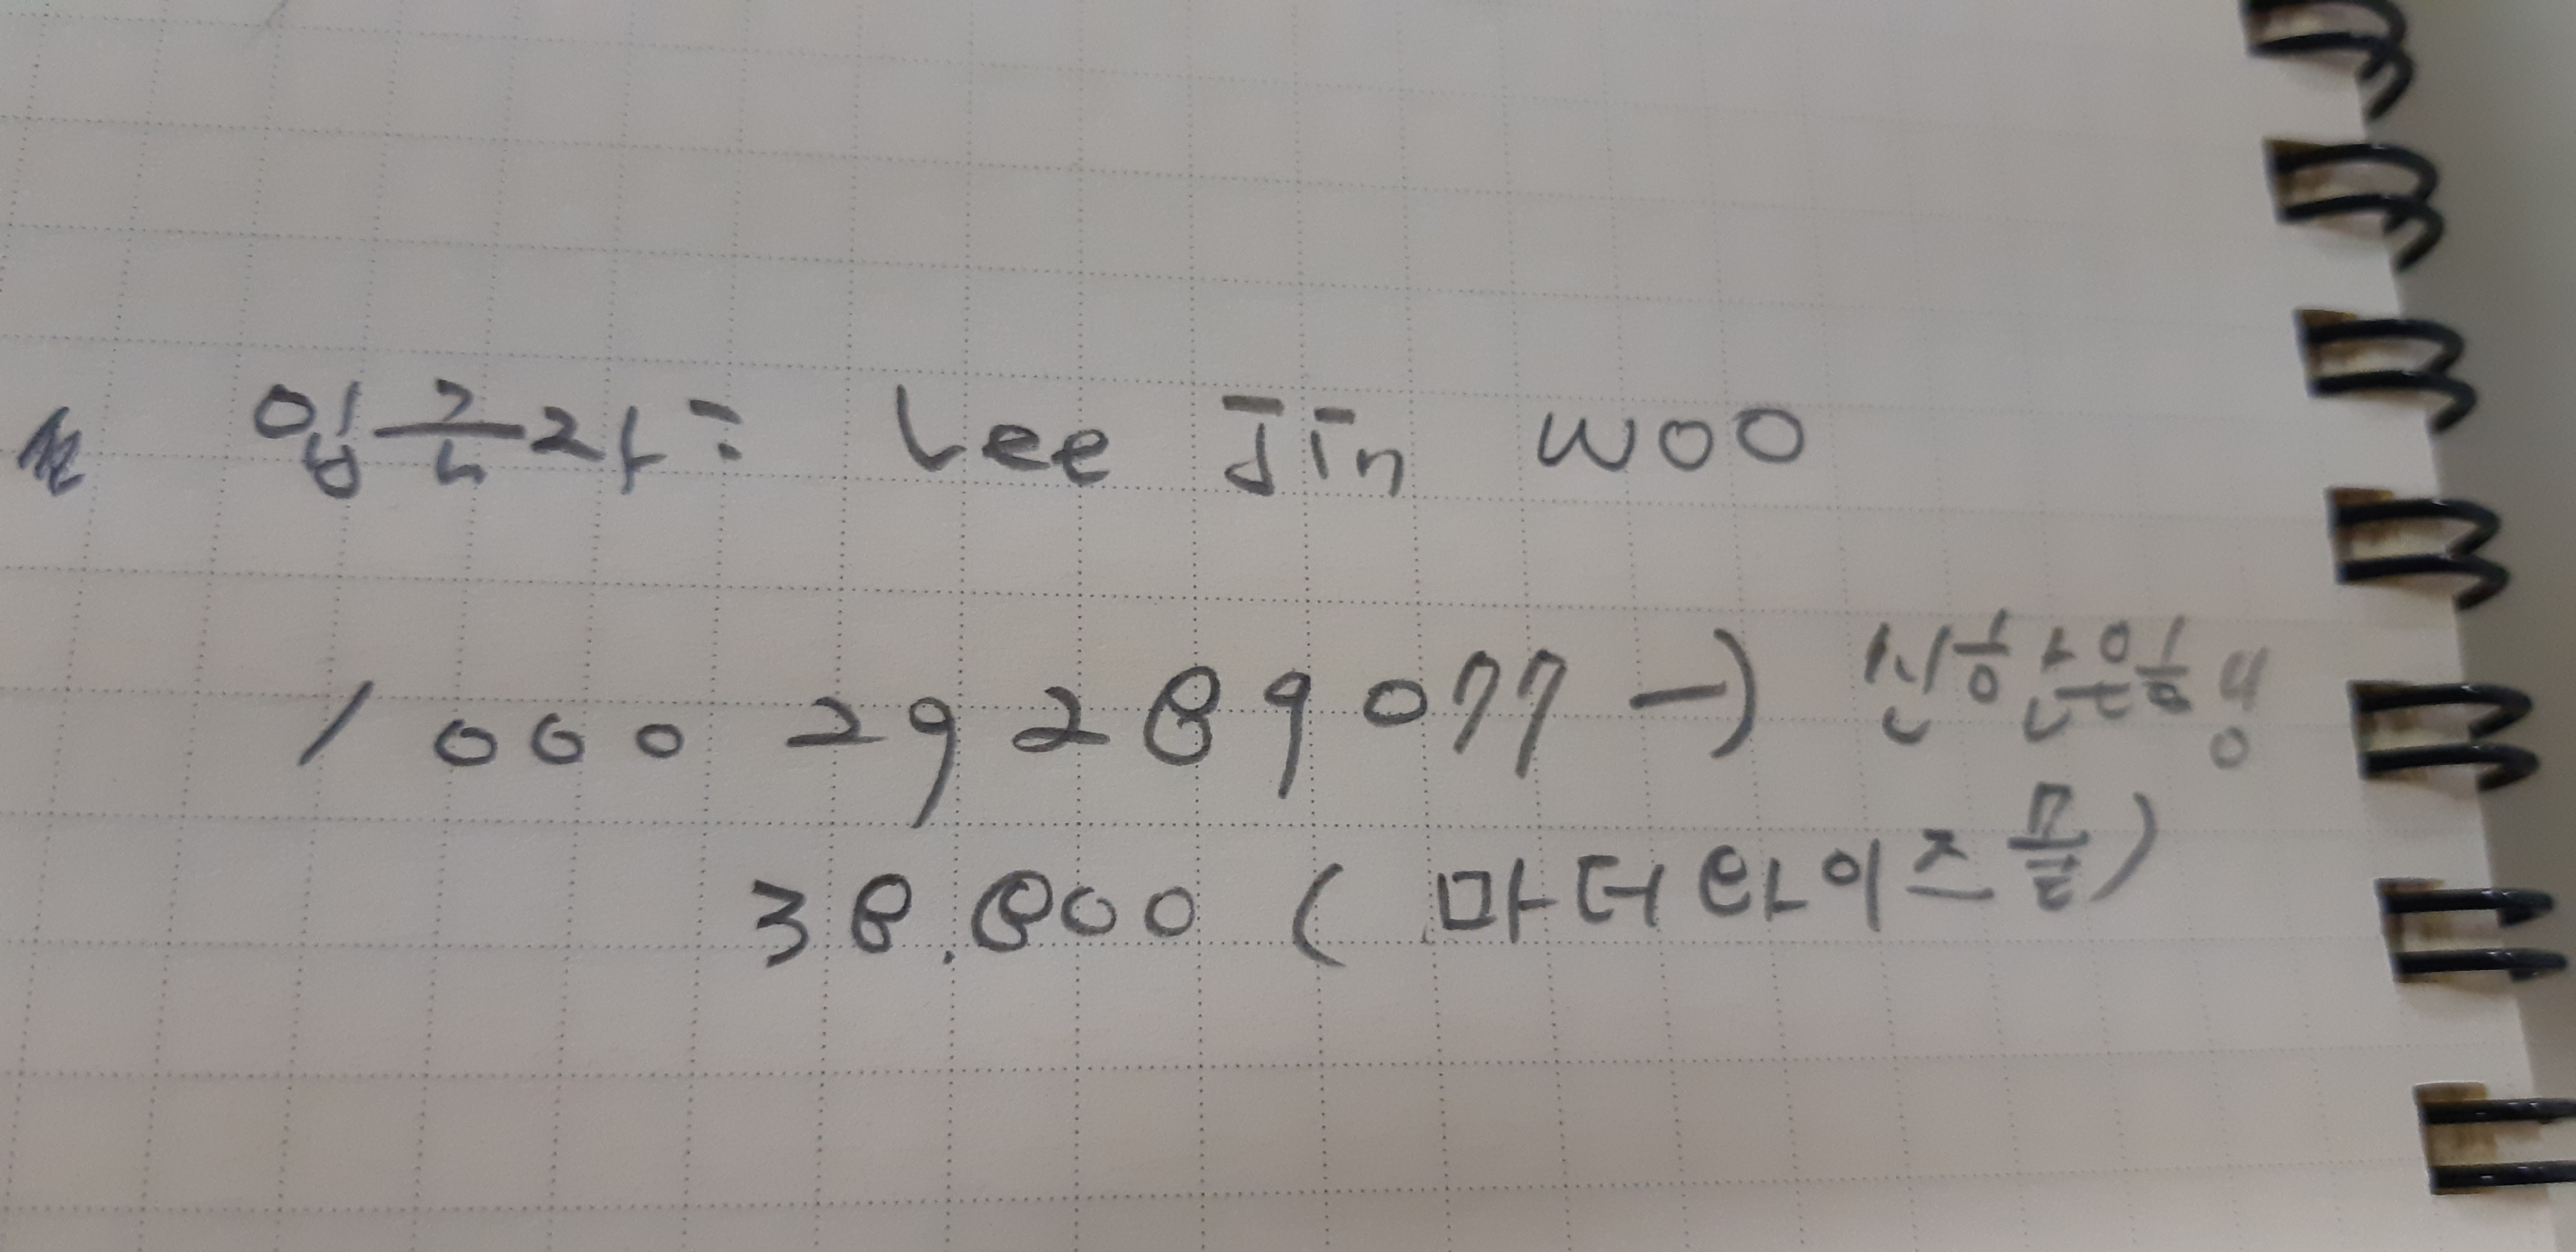 입금자: Lee Jin woo
1000 29289077 → 신한은행
38.800 (마더와이즈끝)